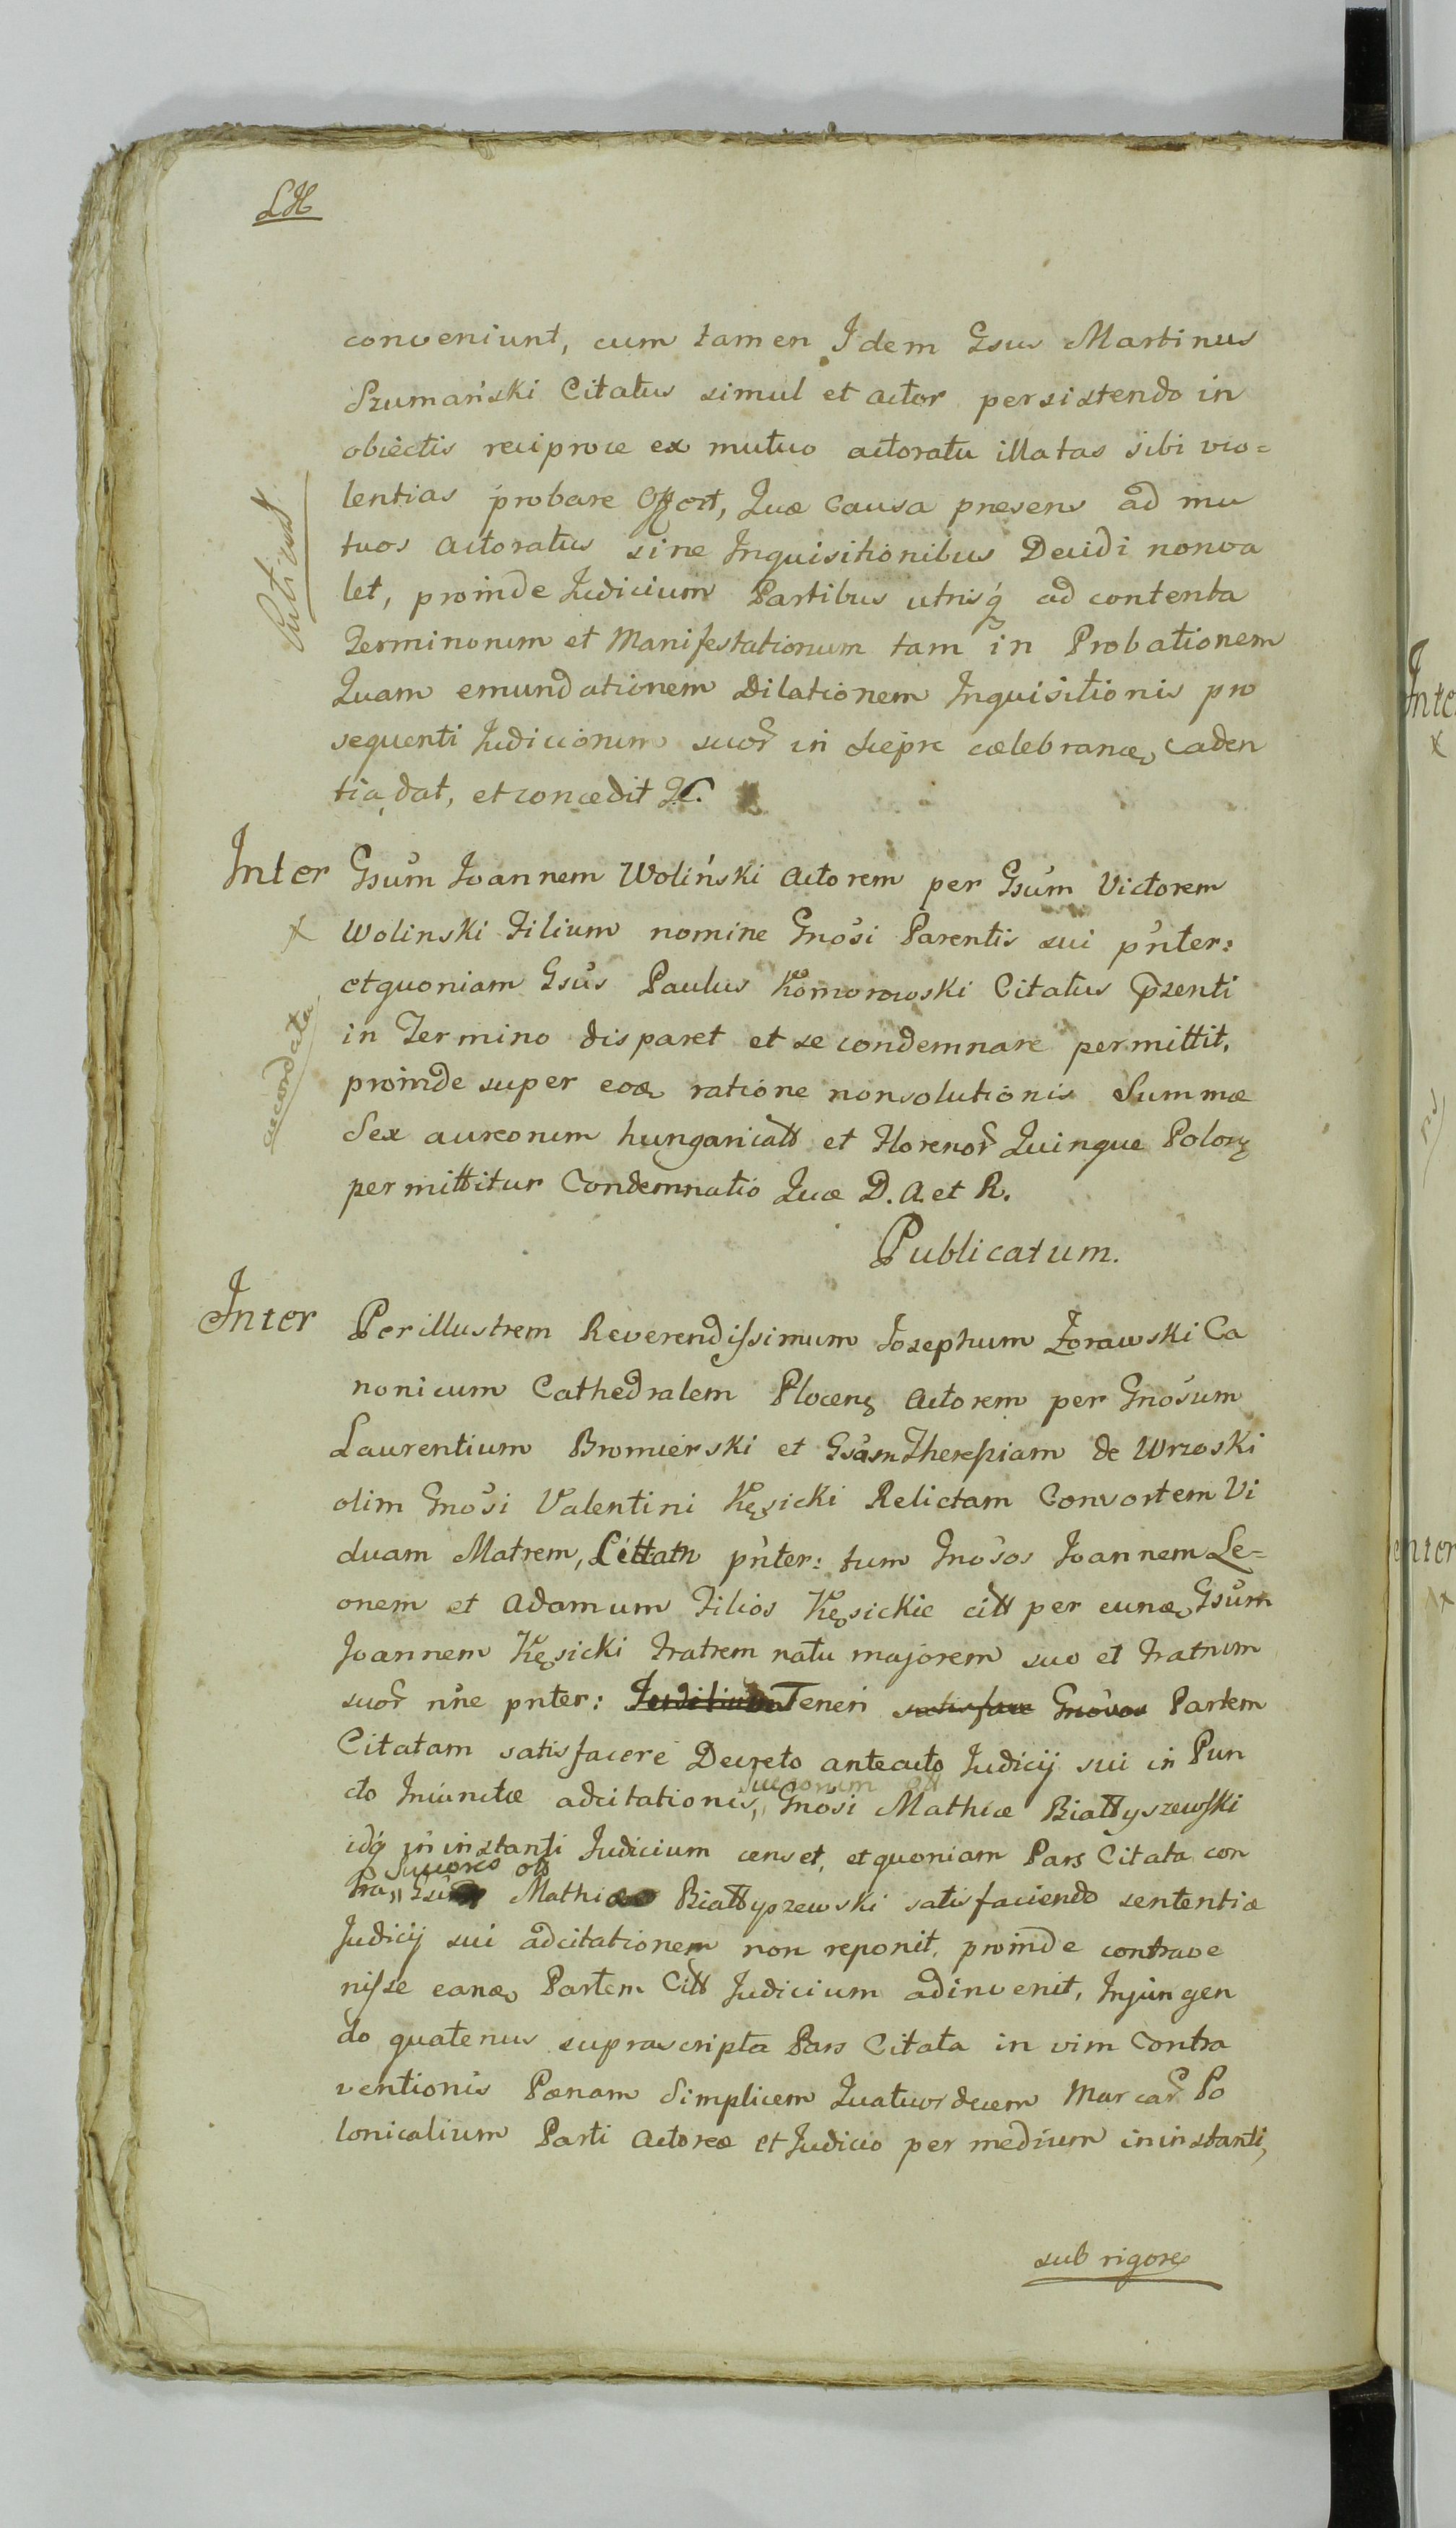 LH
conveniunt, cum tamen Idem Gsus Martinus
Szumański Citatus simul et actor persistendo in
obiectis reciproce ex mutuo actoratu illatas sibi vio=
lentias probare Offert, Quæ causa præsens ad mu
tuos actoratus sine Inquisitionibus Decidi nonva
let, proinde Judicium Partibus utrisq́ ad contenta
Terminorum et Manifestationum tam in Probationem
Quam emundationem Dilationem Inquisitionis pro
sequenti Judiciorum suor̃ in
tia dat, et concedit
Inter Gsum Joannem Woliński Actorem per Gsum Victorem
x Wolinski Filium nomine Gnosi Parentis sui pnter:
etquoniam Gsus Paulus Komorowski Citatus pzenti
in Termino disparet et se condemnare permittit,
accordata
proinde super eoæ ratione nonsolutionis Summæ
Sex aureorum hungaricall et Florenor̃ Quinque Polon
permittitur Condemnatio Quæ D. A. et R.
Publicatum.
Inter Perillustrem Reverendissimum Josephum Żorawski Ca
nonicum Cathedralem Plocens Actorem per Gnosum
Laurentium Bromierski et Gsam Theressiam de Wrzoski
olim Gnosi Valentini Kęsicki Relictam Consortem Vi
duam Matrem, Cittatn pnter: tum Gnosos Joannem Le=
onem et Adamum Filios Kęsickie citt per eunæ Gsum
Joannem Kęsicki Fratrem natu majorem suo et Fratrum
suor̃ nne pnter: Judicium Teneri satisface Gnosos Partem
Citatam satisfacere Decreto antecuto Judicij sui in Pun
cto Iniunctæ adcitationis, Gnosi Mathiæ Biallyszewski
idq́ in instanti Judicium censet, etquoniam Pars Citata con
Mathiæ Biallyszewski satisfaciendo sententiæ
Judicij sui adcitationem non reponit, proinde contrave
nisse eanæ Partem Citt Judicium adinvenit, Injungen
do quatenus suprascripta Pars Citata in vim Contra
ventionis Pænam Simplicem Quatuordecem Marcar̃ Po
lonicalium Parti Actoreæ et Judicio per medium ininstanti,
sub rigore